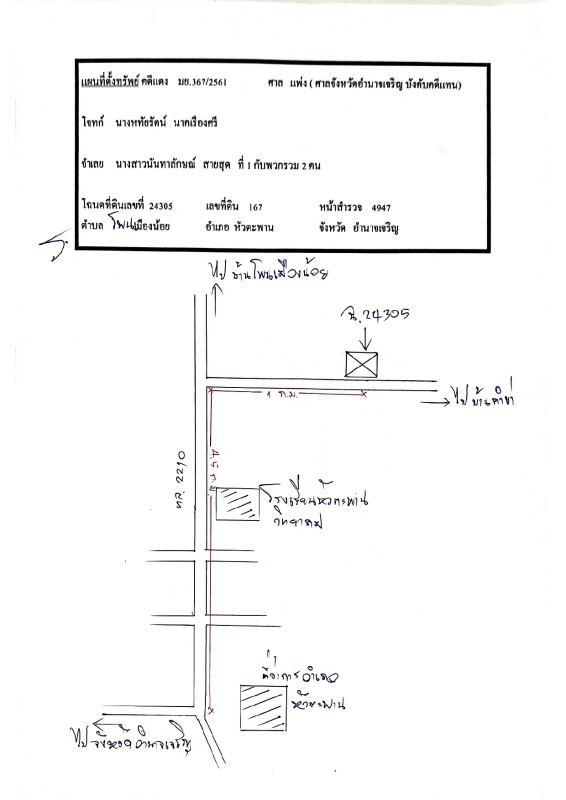 แผนที่ตั้งทรัพย์ คดีแดง ผบ.367/2561 ศาล แพ่ง ( ศาลจังหวัดอำนาจเจริญ บังคับคดีแทน)
โจทก์ นางหทัยรัตน์ นาคเรืองศรี
จำเลย นางสาวนันทาลักษณ์ สายสุด ที่ 1 กับพวกรวม 2 คน
โฉนดที่ดินเลขที่ 24305 เลขที่ดิน 167 หน้าสำรวจ 4947
ตำบล โพนเมืองน้อย อำเภอ หัวตะพาน จังหวัด อำนาจเจริญ
ไป บ้านโพนเมืองน้อย
ฉ.24305
1 ก.ม.
ไป บ้านคำข่า
ทล. 2210
4.5 ก.ม.
โรงเรียนหัวตะพาน
วิทยาคม
ที่ว่าการอำเภอ
หัวตะพาน
ไป จังหวัดอำนาจเจริญ